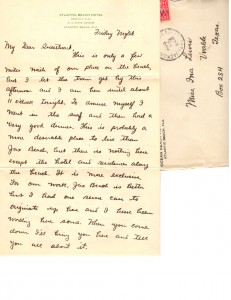 ATLANTIC BEACH HOTEL
ATLANTIC BEACH, FLA.
Friday Night
My Dear Sweetheart
This is only a few
miles north of our place on the beach,
and I let the train get by this
afternoon and I am here until about
11 o'clock tonight. To amuse myself I
went in the surf and then had a
very good dinner. This is probably a
more desirable place to live than
Jax Beach, but then is nothing here
except the hotel and residences along
the beach. It is more exclusive.
For our work, Jax Beach is better
but I had one news can to
originate up here and I have been
working here some. When you come
down I'll bring you here and tell
you all about it.
Miss Ima
Uvalde
Texas
Box 254